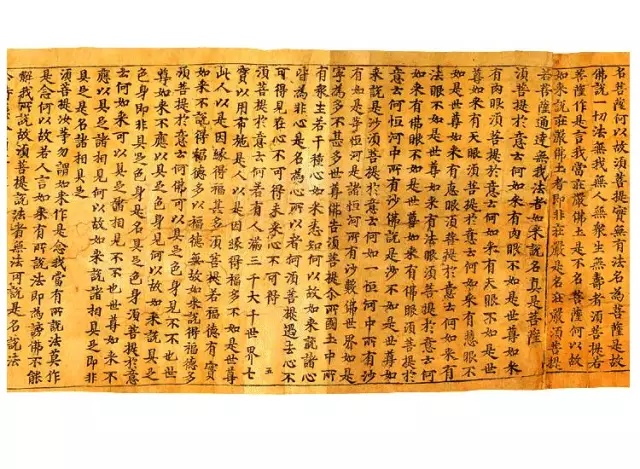 名菩薩何以故須菩提實无有法名為菩薩是故
佛說一切法無我無人無衆生無壽者須菩提若
菩薩作是言我當莊嚴佛土是不名菩薩何以故
如來說莊嚴佛土者即非莊嚴是名莊嚴須菩提
若菩薩通達無我法者如來說名真是菩薩
須菩提於意云何如來有肉眼不如是世尊如來
有肉眼須菩提於意云何如來有天眼不如是世
尊如來有天眼須菩提於意云何如來有慧眼不
如是世尊如來有慧眼須菩提於意云何如來有
法眼不如是世尊如來有法眼須菩提於意云何
如來有佛眼不如是世尊如來有佛眼須菩提於
意云何恒河中所有沙佛說是沙不如是世尊如
來說是沙須菩提於意云何如一恒河中所有沙
有如是等恒河是諸恒河所有沙數佛世界如是
寧為多不甚多世尊佛告須菩提尒所國土中所
有衆生若干種心如來悉知何以故如來說諸心
皆為非心是名為心所以者何須菩提過去心不
可得見在心不可得未來心不可得
五
須菩提於意云何若有人滿三千大千世界七
寶以用布施是人以是因緣得福多不如是世尊
此人以是因緣得福甚多須菩提若福德有實
如來不說得福德多以福德無故如來說得福德多
須菩提於意云何佛可以具足色身見不不也世
尊如來不應以具足色身見何以故如來說具足
色身即非具足色身是名具足色身須菩提於意
云何如來可以具足諸相見不不也世尊如來不
應以具足諸相見何以故如來說諸相具足即非
具足是名諸相具足
須菩提汝等勿謂如來作是念我當有所說法莫作
是念何以故若人言如來有所說法即為謗佛不能
解我所說故須菩提說法者無法可說是名說法